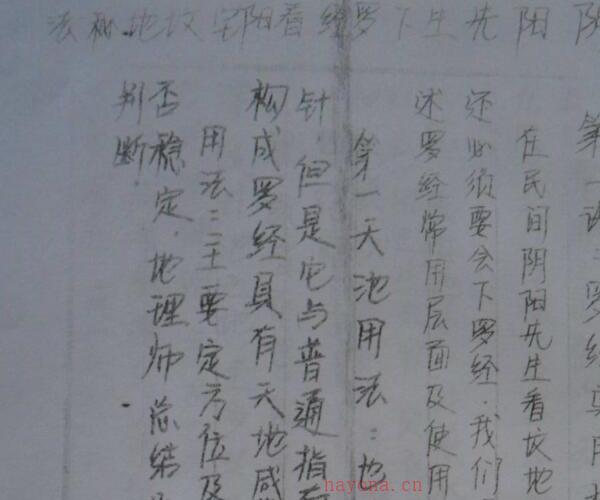 阴阳先生下罗经看阳宅坟地秘法
第一诀：罗经实用
在民间阴阳先生看坟地
还必须要会下罗经．我们
述罗经常用层面及使用
第一天池用法：也
针．但是它与普通指南
构成罗经具有天地感
用法：二主要定方位及
否稳定．地理师总结
判断．
hayona.cn